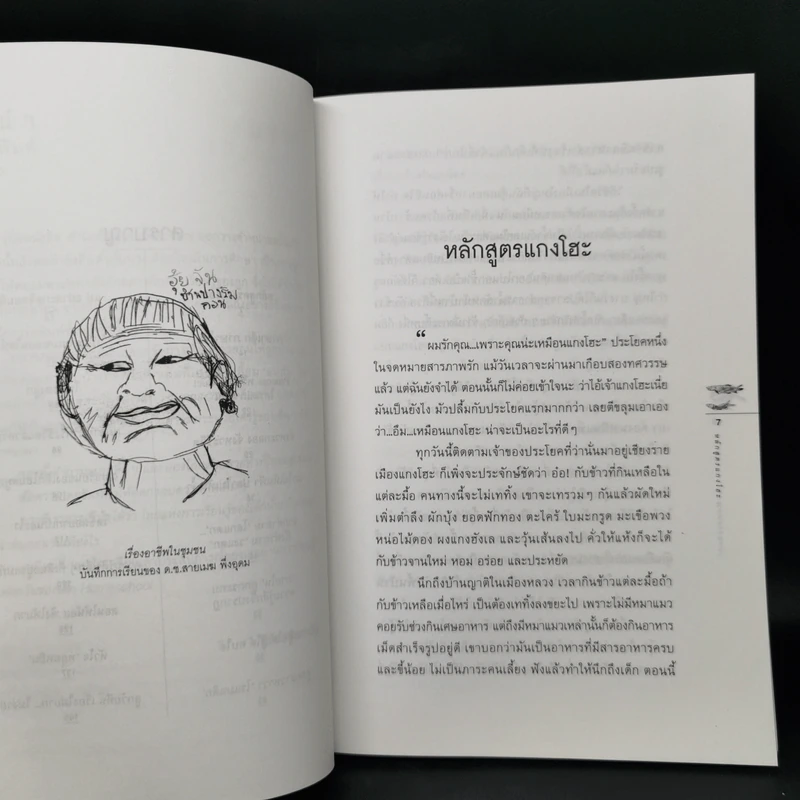 อุ้ย จัน
บ้านปางริม
คอน
เรื่องอาชีพในชุมชน
บันทึกการเรียนของ ด.ช.สายเมฆ พึ่งอุดม
หลักสูตรแกงโฮะ
“ผมรักคุณ...เพราะคุณน่ะเหมือนแกงโฮะ” ประโยคหนึ่ง
ในจดหมายสารภาพรัก แม้วันเวลาจะผ่านมาเกือบสองทศวรรษ
แล้ว แต่ฉันยังจำได้ ตอนนั้นก็ไม่ค่อยเข้าใจนะ ว่าไอ้เจ้าแกงโฮะเนี่ย
มันเป็นยังไง มัวปลื้มกับประโยคแรกมากกว่า เลยตีขลุมเอาเอง
ว่า...อืม...เหมือนแกงโฮะ น่าจะเป็นอะไรที่ดีๆ
ทุกวันนี้ติดตามเจ้าของประโยคที่ว่านั่นมาอยู่เชียงราย
เมืองแกงโฮะ ก็เพิ่งจะประจักษ์ชัดว่า อ๋อ! กับข้าวที่กินเหลือใน
แต่ละมื้อ คนทางนี้จะไม่เททิ้ง เขาจะเทรวมๆ กันแล้วผัดใหม่
เพิ่มตำลึง ผักบุ้ง ยอดฟักทอง ตะไคร้ ใบมะกรูด มะเขือพวง
หน่อไม้ดอง ผงแกงฮังเล และวุ้นเส้นลงไป คั่วให้แห้งก็จะได้
กับข้าวจานใหม่ หอม อร่อย และประหยัด
นึกถึงบ้านญาติในเมืองหลวง เวลากินข้าวแต่ละมื้อถ้า
กับข้าวเหลือเมื่อไหร่ เป็นต้องเททิ้งลงขยะไป เพราะไม่มีหมาแมว
คอยรับช่วงกินเศษอาหาร แต่ถึงมีหมาแมวเหล่านั้นก็ต้องกินอาหาร
เม็ดสำเร็จรูปอยู่ดี เขาบอกว่ามันเป็นอาหารที่มีสารอาหารครบ
และขี้น้อย ไม่เป็นภาระคนเลี้ยง ฟังแล้วทำให้นึกถึงเด็ก ตอนนี้
7
หลักสูตรแกงโฮะ